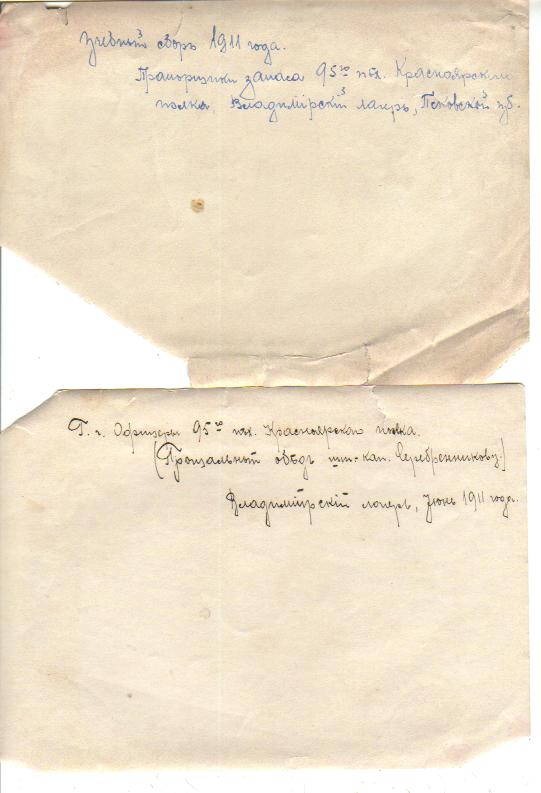 Учебный сборъ 1911 года.
Прапорщики запаса 95го пѣх. Красноярскаго
полка. Владимірскій лагерь, Псковской губ.
Г. г. Офицеры 95го пѣх. Красноярскаго полка.
(Прощальный обѣдъ шт.-кап. Серебренникову.)
Владимірскій лагерь, Іюнь 1911 года.